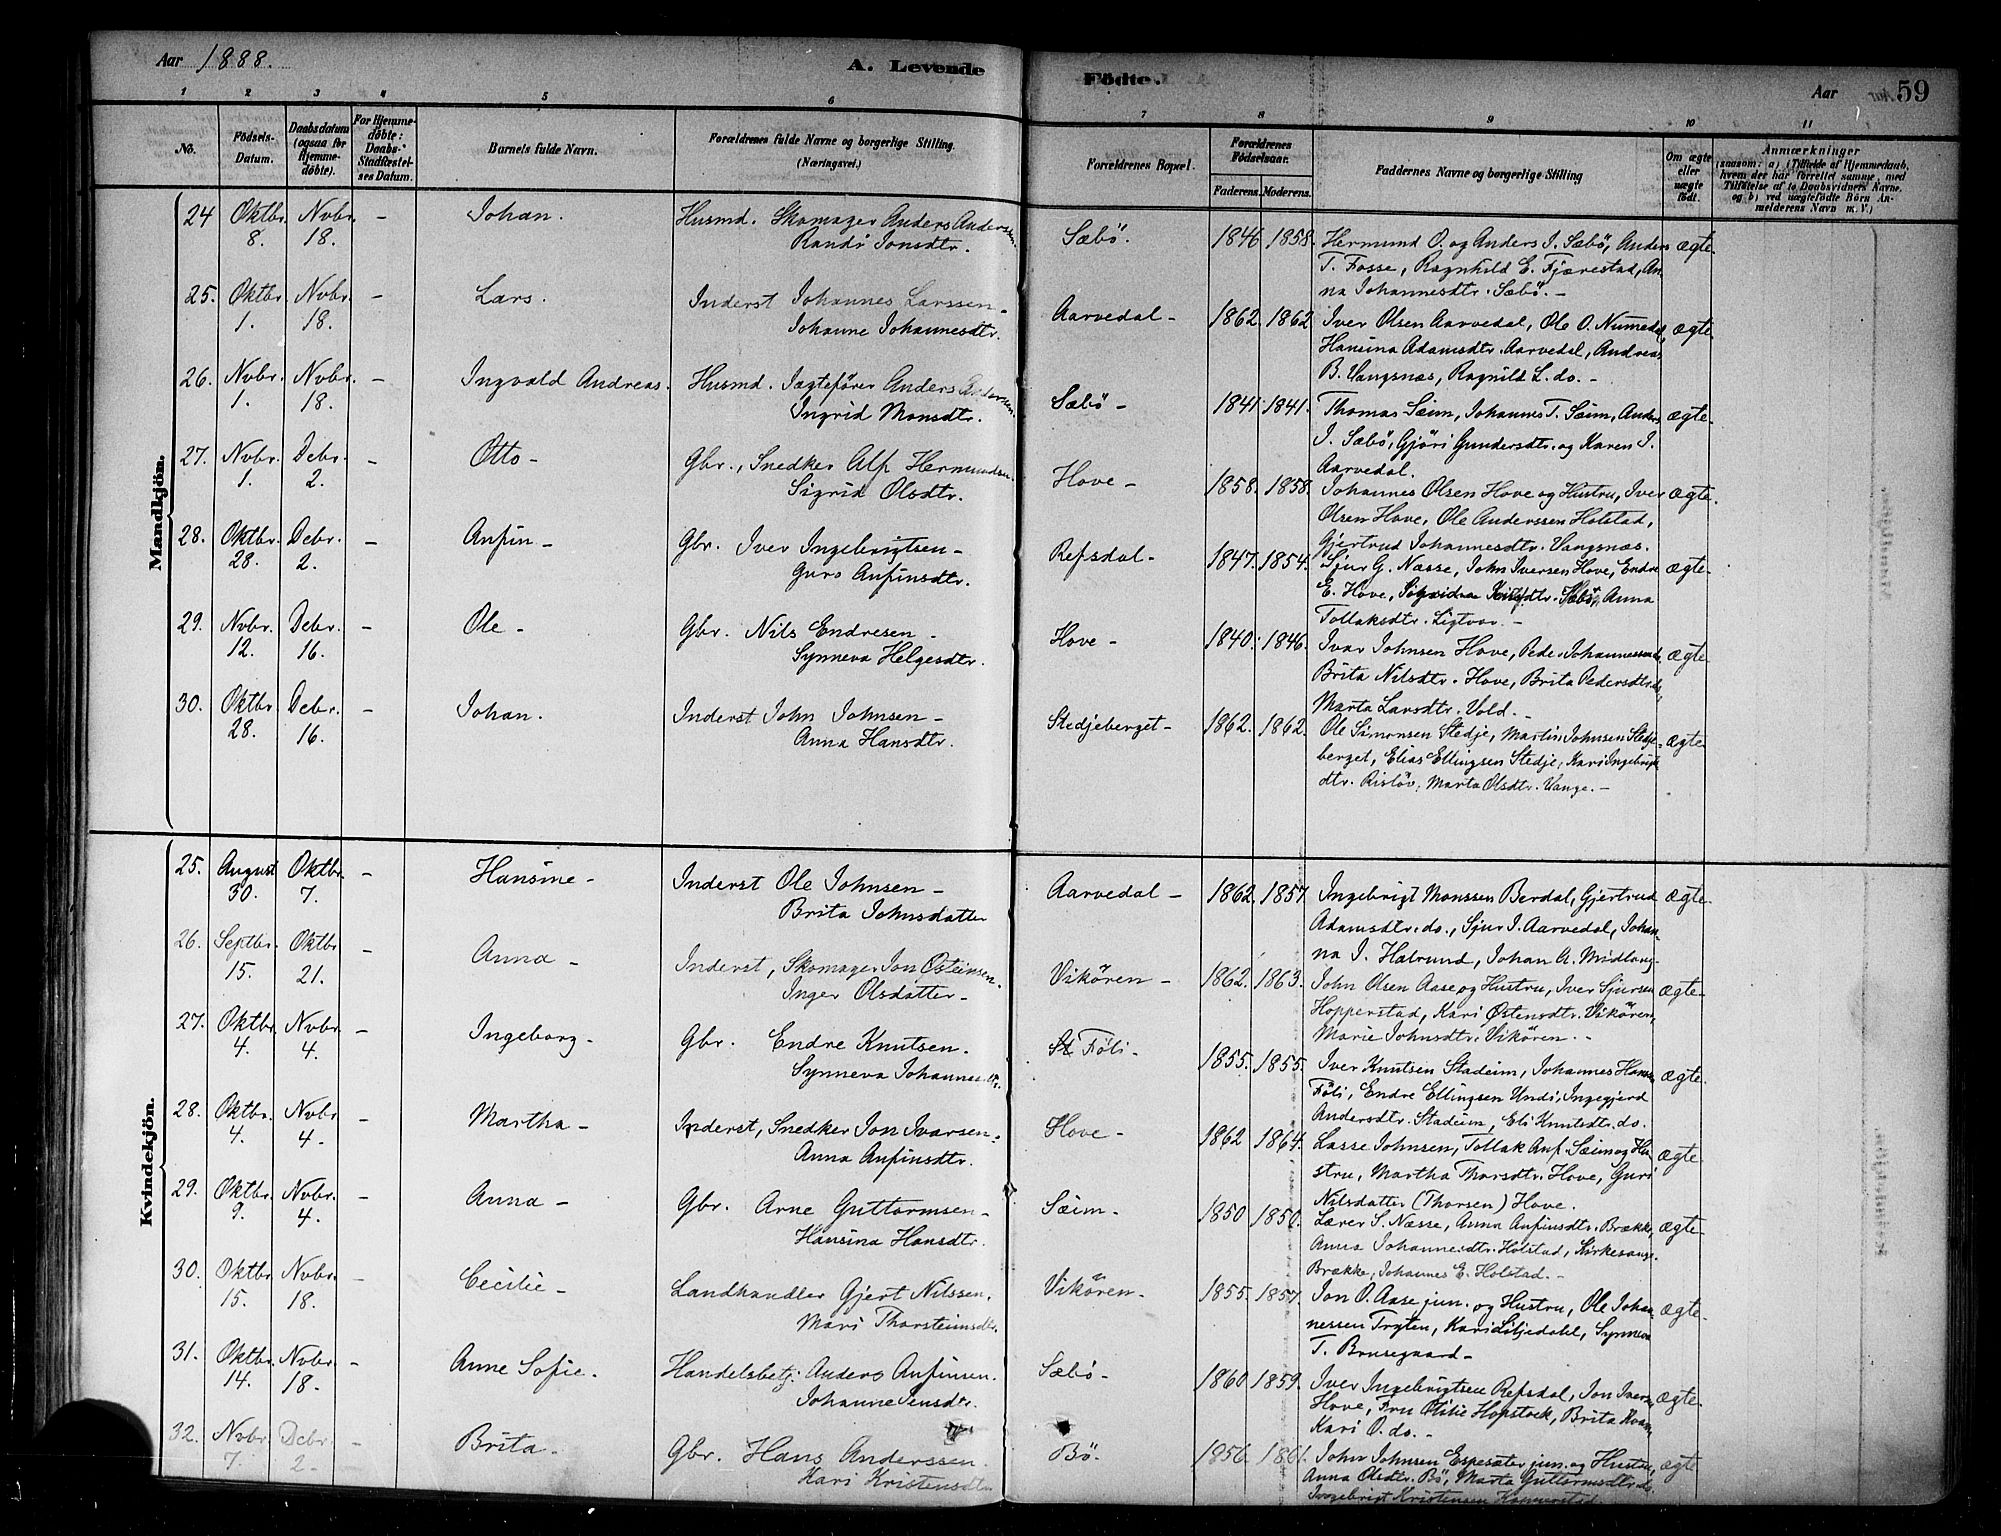 Aar 1888.
A. Levende
Födte.
Aar
59
1 2 3 4 5 6 7 8 9 10 11
No.
Födsels-Datum.
Daabsdatum (ogsaa for Hjemmedöbte).
For Hjemmedöbte: Daabs-Stadfæstelses Datum.
Barnets fulde Navn.
Forældrenes fulde Navne og borgerlige Stilling. (Næringsvei.)
Forældrenes Bopæl.
Forældrenes Födselsaar.
Faderens. Moderens.
Faddernes Navne og borgerlige Stilling
Om ægte eller uægte födt.
Anmærkninger
(saasom: a) i Tilfælde af Hjemmedaab, hvem der har forrettet samme, med Tilföielse af to Daabsvidners Navne, og b) ved uægtefödte Börn Anmelderens Navn m. V.)
Mandkjön.
24 Oktbr. 8. Novbr. 18. - Johan. Husmd. Skomager Anders Anderssen. Sæbö. 1846 1858. Hermund O. og Anders I. Sæbö, Anders ægte.
Randi Jonsdtr. T. Fosse, Ragnhild E. Fjærestad, An-
na Johannesdtr. Sæbö. -
25. Oktbr. 1. Nvbr. 18. - Lars. Inderst Johannes Larssen - Aarvedal - 1862. 1862 Iver Olsen Aarvedal, Ole O. Numedal, ægte.
Johanne Johannesdtr. Hansina Adamsdtr. Aarvedal, Andreas
B. Vangsnæs, Ragnild L. do. -
26. Nvbr. 1. Nvbr. 18. - Ingvald Andreas. Husmd. Jægtefører Anders Anderssen. Sæbö - 1841 1841. Thomas Seim, Johannes T. Seim, Anders ægte.
Ingrid Monsdtr. I. Sæbö, Gjöri Gundersdtr. og Karen I.
Aarvedal.
27. Nvbr. 1. Debr. 2. - Otto - Gbr., Snedker Alf Hermundsen. Hove - 1858. 1858. Johannes Olsen Hove og Hustru, Iver ægte.
Sigrid Olsdtr. Olsen Hove, Ole Anderssen Holstad,
Gjertrud Johannesdtr. Vangsnæs.
28. Oktbr. 28. Debr. 2. - Anfin - Gbr. Iver Ingebrigtsen - Refsdal - 1847. 1854. Sjur G. Næsse, John Iversen Hove, Endre ægte.
Guro Anfinsdtr. E. Hove, Sæbö, Anna
Tollaksdtr. Ligtvor. -
29. Nvbr. 12. Debr. 16. - Ole - Gbr. Nils Endresen - Hove - 1840. 1846. Ivar Johnsen Hove, Peder Johannessen do. ægte
Synneva Helgesdtr. Brita Nilsdtr. Hove, Brita Pedersdtr. do.,
Marta Larsdtr. Vold. -
30. Oktbr. 28. Debr. 16. - Johan. Inderst John Johnsen - Stedjeberget - 1862. 1862. Ole Simonsen Stedje, Martin Johnsen Stedje- ægte
Anna Hansdtr. berget, Elias Ellingsen Stedje, Kari Ingebrigts-
dtr. Risløv, Marta Olsdtr. Vange. -
Kvindekjön.
25. August 30. Oktbr. 7. - Hansine - Inderst Ole Johnsen - Aarvedal - 1862. 1857. Ingebrigt Monssen Berdal, Gjertrud ægte.
Brita Johnsdatter Adamsdtr. do., Sjur I. Aarvedal, Johan-
na I. Halrund, Johan A. Midlang.
26. Septbr. 15. Oktbr 21. - Anna - Inderst, Skomager Jon Osteinsen. Vikören - 1862. 1863. John Olsen Aase og Hustru, Iver Sjursen ægte
Inger Olsdatter - Hopperstad, Kari Østensdtr. Vikören,
Marie Johnsdtr. Vikören. -
27. Oktbr. 4. Nvbr. 4. - Ingeborg - Gbr. Endre Knutsen. Föli - 1855. 1855. Iver Knutsen Stadeim, Johannes Hansen ægte.
Synneva Johannesdtr. Föli, Endre Ellingsen Undi, Ingegjerd
Andersdtr. Stadeim, Eli Knutsdtr. do.
28. Oktbr. 4. Nvbr. 4. - Martha - Inderst, Snedker Jon Ivarsen. Hove - 1862 1864. Lasse Johnsen, Tollak Anf. Seim og Hu- ægte
Anna Anfinsdtr. stru, Martha Thorsdtr. Hove, Guri
Nilsdatter (Thorsen) Hove.
29. Oktbr. 9. Nvbr. 4. - Anna - Gbr. Arne Guttormsen - Seim - 1850 1850. Lærer S. Næsse, Anna Anfinsdtr. Brække, ægte.
Hansina Hansdtr. Anna Johannesdtr. Holstad, Kirkesang.
Brække, Johannes E. Holstad. -
30. Oktbr. 15. Nvbr. 18. - Cecilie - Landhandler Gjert Nilssen. Vikören - 1855. 1857. Jon O. Aase jun. og Hustru, Ole Johan- ægte.
Mari Thorsteinsdtr. nessen Tryten, Kari Liljedahl, Synneva
T. Brusegaard -
31. Oktbr. 14. Nvbr. 18. - Anne Sofie. Handelsbetj. Anders Anfinsen. Sæbö - 1860 1859. Iver Ingebrigtsen Refsdal, Jon Ivers. ægte.
Johanne Jensdtr. Hove, Fru Otilie Hopstock, Brita Kvam.
Kari O. do. -
32. Nvbr. 7. Debr. 2. - Brita. Gbr. Hans Anderssen. Bö. 1856. 1861. John Johnsen Espesæter jun. og Hustru, ægte
Kari Kristensdtr. Anna Olsdtr. Bö, Marta Guttormsdtr. do.
Ingebrigt Kristensen Hopperstad